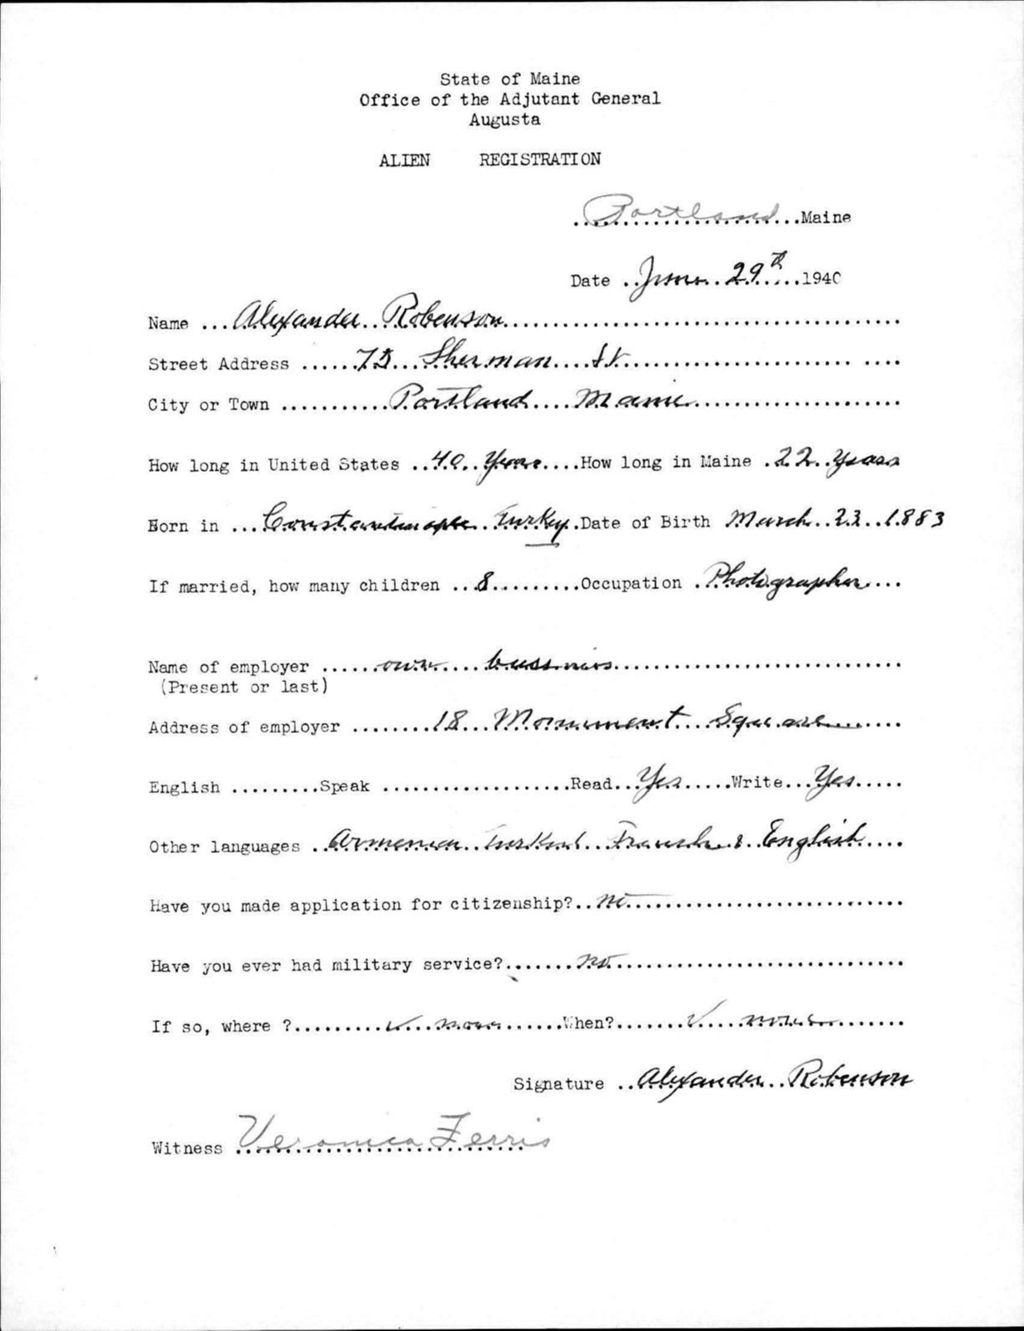 State of Maine
Office of the Adjutant General
Augusta
ALIEN REGISTRATION
Portland Maine
Date June 29th 1940
Name Alexander Robenson
Street Address 75 Sherman St
City or Town Portland Maine
How long in United States 40 Years How long in Maine 22 Years
Born in Constantinople Turkey Date of Birth March 23 1883
If married, how many children 8 Occupation Photographer
Name of employer own bussines
(Present or last)
Address of employer 18 Monument Square
English Speak Read Yes Write Yes
Other languages Armenian Turkish French & English
Have you made application for citizenship? no
Have you ever had military service? no
If so, where ? none When? none
Signature Alexander Robenson
Witness Veronica Ferris